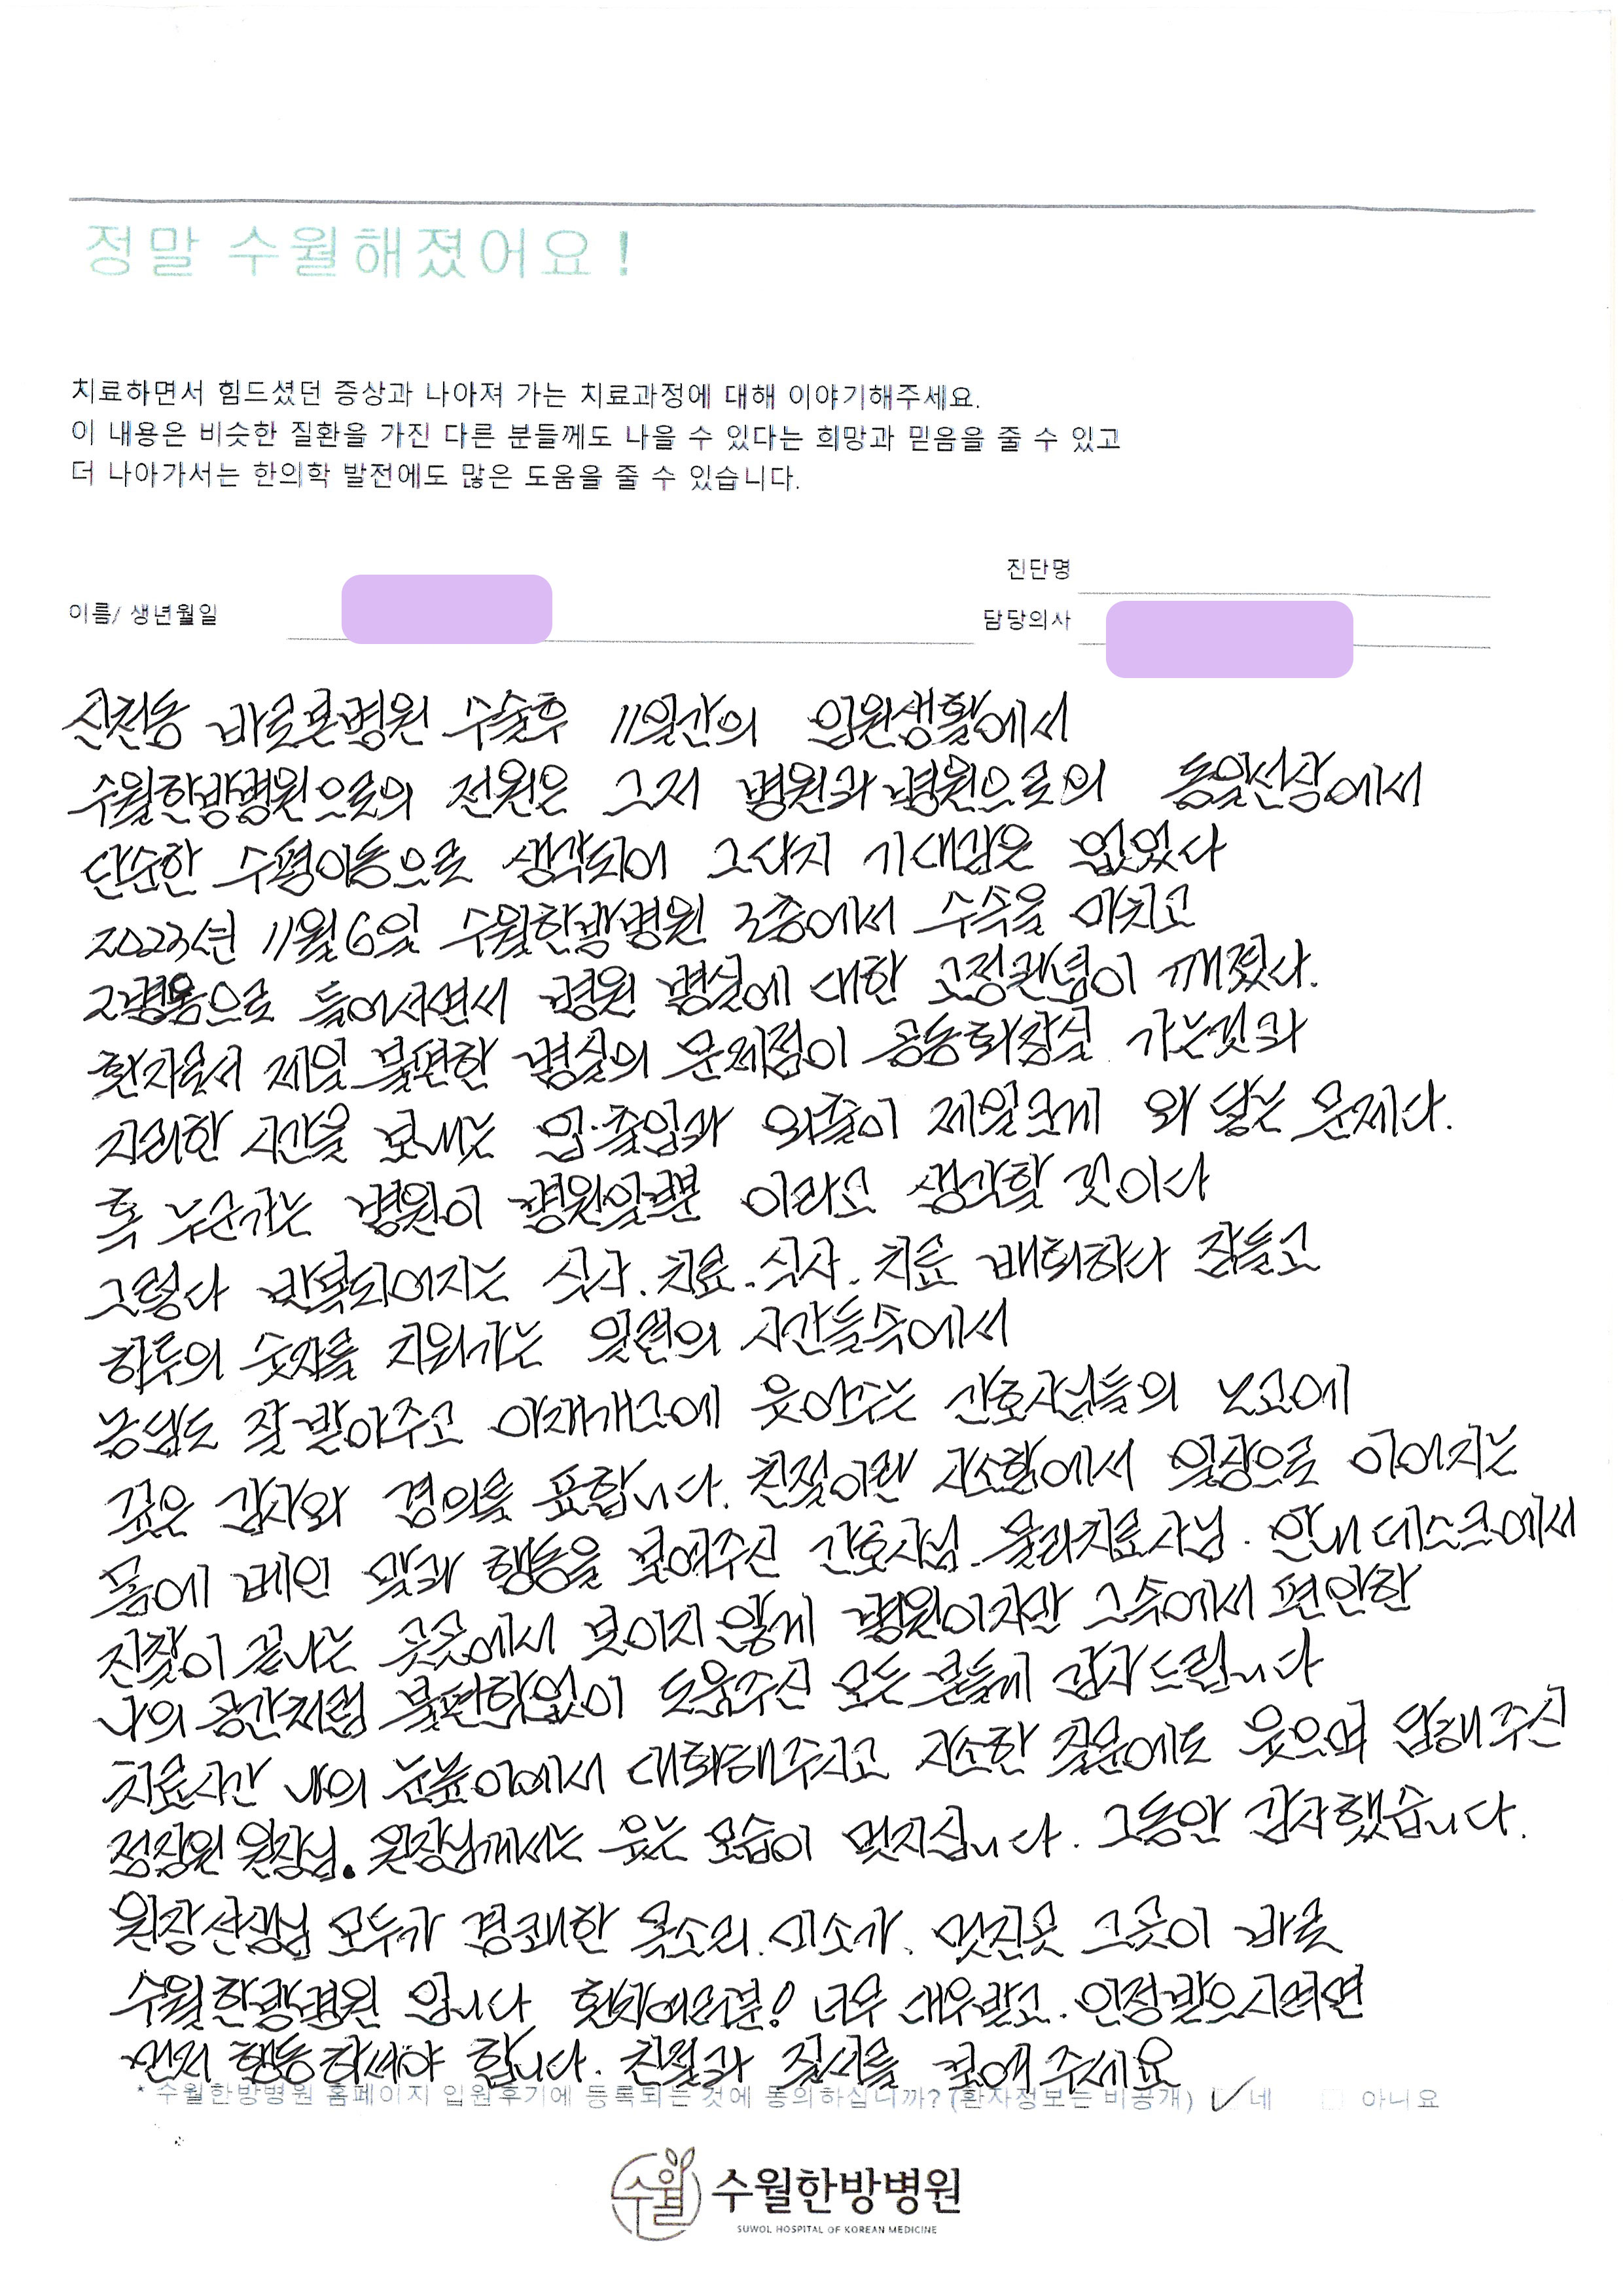 정말 수월해졌어요!
치료하면서 힘드셨던 증상과 나아져 가는 치료과정에 대해 이야기해주세요.
이 내용은 비슷한 질환을 가진 다른 분들께도 나을 수 있다는 희망과 믿음을 줄 수 있고
더 나아가서는 한의학 발전에도 많은 도움을 줄 수 있습니다.
진단명
이름/ 생년월일
담당의사
신천동 바로본병원 수술후 11일간의 입원생활에서
수월한방병원으로의 전원은 그저 병원과 병원으로의 동일선상에서
단순한 수평이동으로 생각되어 그다지 기대감은 없었다
2023년 11월 6일 수월한방병원 2층에서 수속을 마치고
2병동으로 들어서면서 병원 병실에 대한 고정관념이 깨졌다.
환자로서 제일 불편한 병실의 문제점이 공동화장실 가는것과
지리한 시간을 보내는 입·출입과 외출이 제일크게 와 닿는 문제다.
혹 누군가는 병원이 병원일뿐 이라고 생각할 것이다
그렇다 반복되어지는 식사.치료.식사.치료 배회하다 잠들고
하루의 숫자를 지워가는 일련의 시간들속에서
농담도 잘 받아주고 아재개그에 웃어주는 간호사님들의 노고에
깊은 감사와 경의를 표합니다. 친절이란 사소함에서 일상으로 이어지는
몸에 베인 말과 행동을 보여주신 간호사님.물리치료사님. 안내 데스크에서
진찰이 끝나는 곳곳에서 보이지 않게 병원이지만 그속에서 편안한
나의 공간처럼 불편함없이 도움주신 모든 분들께 감사드립니다
치료시간 나의 눈높이에서 대화해주시고 사소한 질문에도 웃으며 답해주신
정장원 원장님. 원장님께서는 웃는 모습이 멋지십니다. 그동안 감사했습니다.
원장선생님 모두가 경쾌한 목소리.미소가. 멋진곳 그곳이 바로
수월한방병원 입니다 환자여러분! 너무 대우받고. 인정받으시려면
먼저 행동하셔야 합니다. 친절과 질서를 보여주세요
* 수월한방병원 홈페이지 입원후기에 등록되는 것에 동의하십니까? (환자정보는 비공개) ✓ 네 □ 아니요
수월 수월한방병원
SUWOL HOSPITAL OF KOREAN MEDICINE